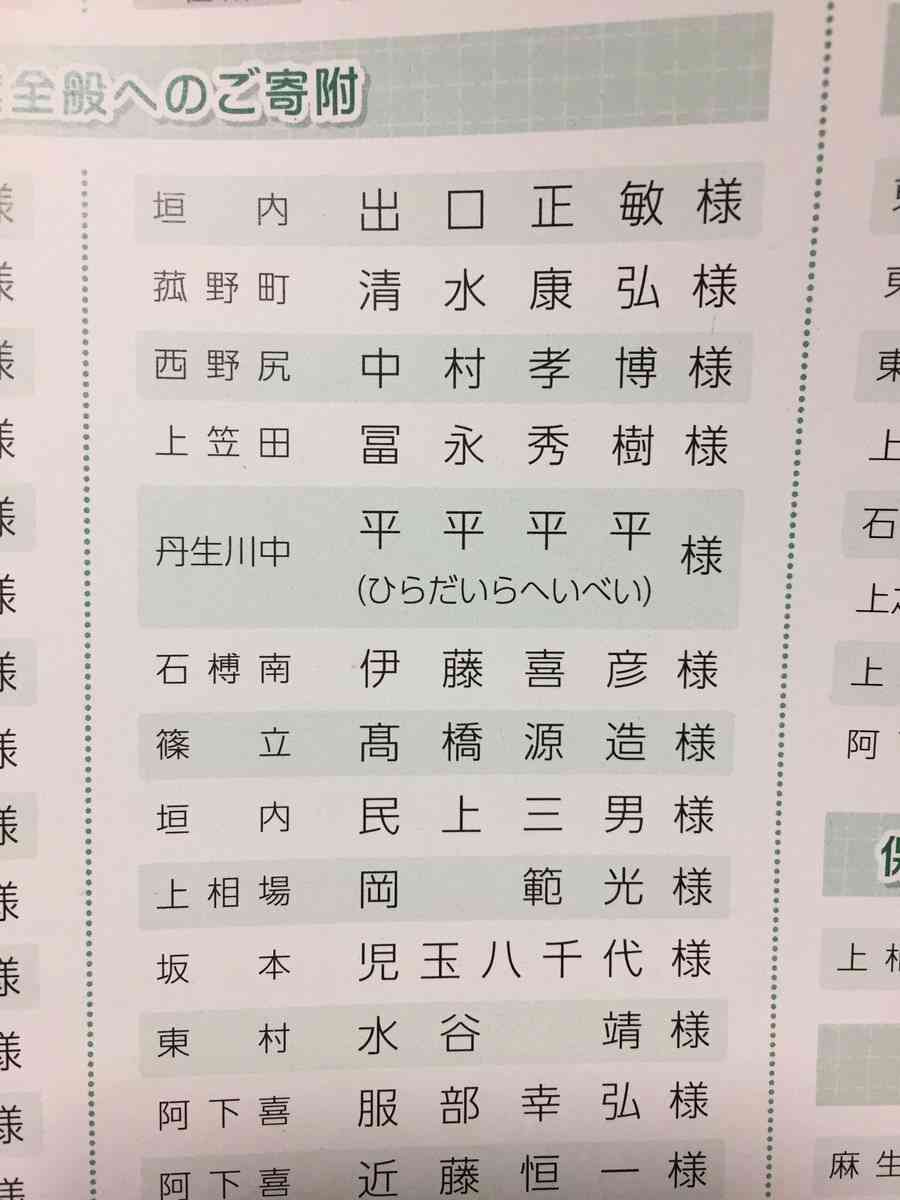 全般へのご寄附
垣内 出口正敏様
菰野町 清水康弘様
西野尻 中村孝博様
上笠田 冨永秀樹様
丹生川中 平平平平様
(ひらだいらへいべい)
石榑南 伊藤喜彦様
篠立 髙橋源造様
垣内 民上三男様
上相場 岡範光様
坂本 児玉八千代様
東村 水谷靖様
阿下喜 服部幸弘様
阿下喜 近藤恒一様
様
様
様
様
様
様
様
様
様
様
様
様
東
上
石
上
阿
上
麻生